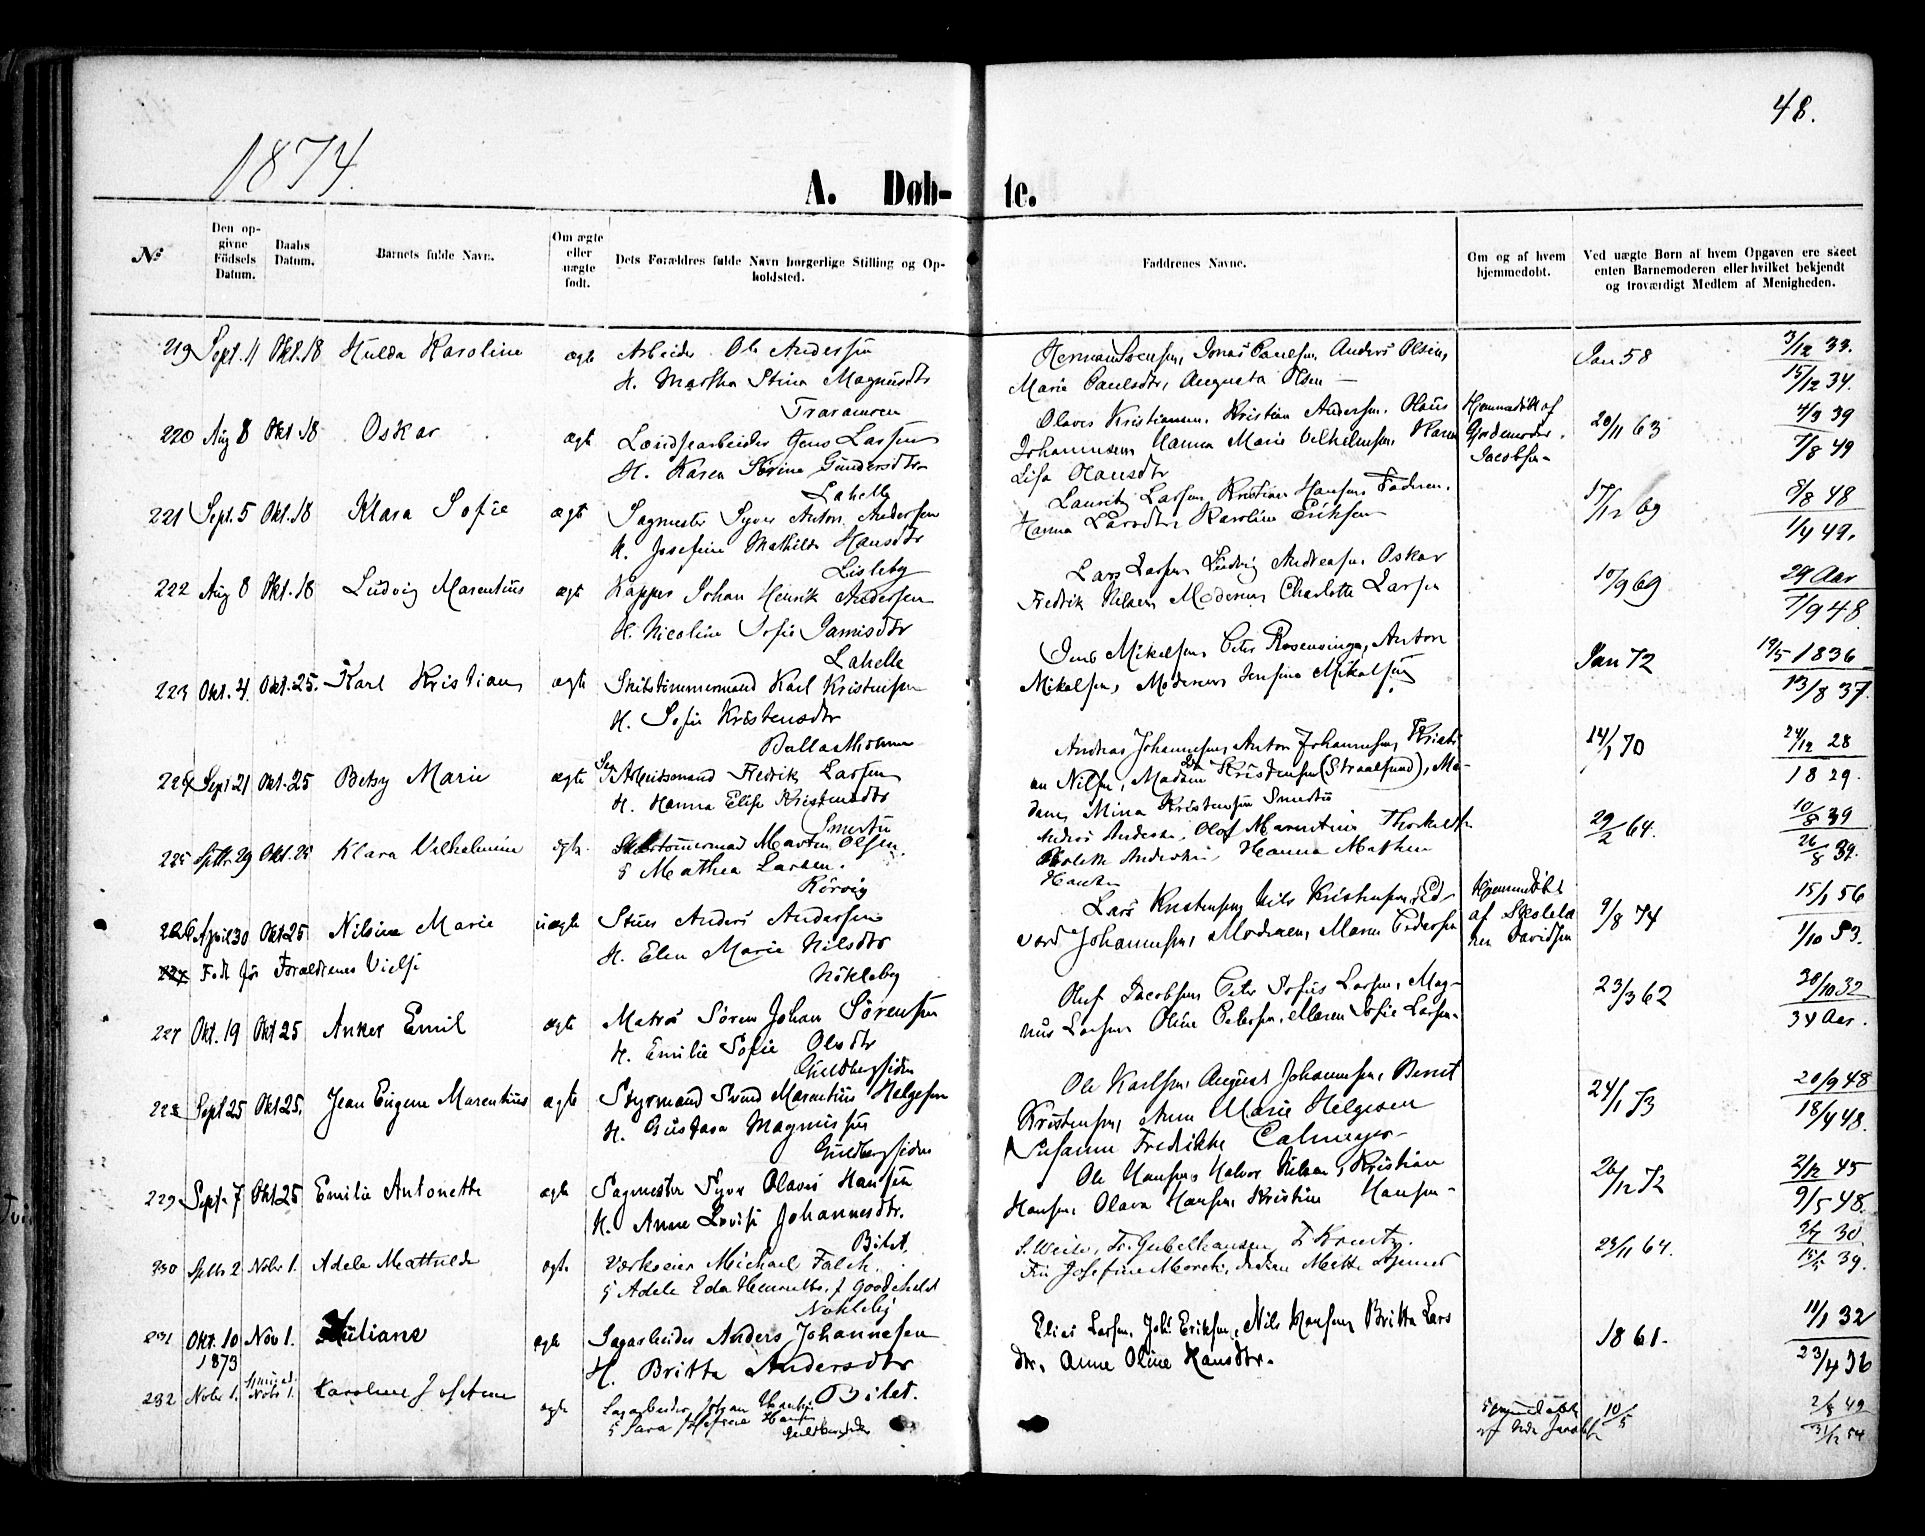 48.
1874.
A. Døb- te.
№
Den op-
givne
Födsels
Datum.
Daabs
Datum.
Barnets fulde Navn.
Om ægte
eller
uægte
født.
Dets Forældres fulde Navn borgerlige Stilling og Op-
holdsted.
Faddrenes Navne.
Om og af hvem
hjemmedøbt.
Ved uægte Børn af hvem Opgaven ere skeet
enten Barnemoderen eller hvilket bekjendt
og troværdigt Medlem af Menigheden.
219 Sept. 11 Okt. 18 Hulda Karoline ægte Arbeider Ole Andersen
H. Martha Stina Magnusdtr
Traraveien
Herman Svensen, Jonas Paulsen, Anders Olsen,
Marie Paulsdtr, Augusta Olsen
Jan 58 3/12 33.
15/12 34.
220 Aug 8 Okt 18 Oskar ægte Landsearbeider Jens Larsen
H. Karen Serine Gundersdtr
Lahelle
Olaves Kristiansen, Kristian Andersen, Olaus
Johannesen Hanna Marie Vilhelmsen, Karen
Lisa Olausdtr
Hjemmedøbt af
Gjordemoder
Jacobsen
20/11 63 4/3 39
7/8 49
221 Sept. 5 Okt. 18 Klara Sofie ægte Sagmester Syver Anton Andersen
H. Josefine Mathilde Hansdtr
Lisleby
Lauritz Larsen, Kristian Hansen, Faderen,
Hanna Larsdtr, Karoline Eriksen
17/12 69 8/8 48
1/4 49.
222 Aug 8 Okt. 18 Ludvig Marentius ægte Kapper Johan Henrik Andersen
H. Nicoline Sofie Jamisdtr
Lahelle
Lars Larsen Ludvig Andreasen Oskar
Fredrik Nilsen, Moderen, Charlotte Larsen
10/9 69 29 Aar
7/9 48
223 Okt. 4. Okt. 25. Karl Kristian ægte Skibstømmermand Karl Kristensen
H. Sofie Kristensdtr
Ballastholmen
Jens Mikelsen, Peter Rosensinge, Anton
Mikelsen, Moderen, Jensine Mikelsen
Jan 72 19/5 1836
13/8 37.
224 Sept 21 Okt. 25 Betsy Marie ægte Arbeidsmand Fredrik Larsen
H. Hanna Elise Kristensdtr
Smertu
Andreas Johannesen, Anton Johannesen, Kristi
an Nilsen, Madam Kristensen (Straalsund), Ma-
dam Mina Kristensen Smertu
14/1 70 24/12 28
1829.
225 Septbr. 29 Okt. 25 Klara Vilhelmine ægte Skibstømmermand Martin Olsen.
H Mathea Larsen.
Rørvig
Anders Andersen, Olof Marentius Thorkeldsen
Andersen, Hanna Mathea
Hansen
29/2 64. 10/8 39
26/8 39.
226 April 30 Okt 25 Nilsine Marie uægte Stuer Anders Andersen
H. Elen Marie Nilsdtr
Nökleby
Født før Forældrenes Vielse
Lars Kristensen, Nils Kristensen, Ed-
vard Johannesen, Moderen, Maren Pedersen
Hjemmedøbt
af Skolelæ
rer Davidsen
9/8 74 15/1 56
1/10 53.
227 Okt. 19 Okt 25 Anker Emil ægte Matros Sören Johan Sörensen
H. Emilie Sofie Olsdtr
Guldbergsiden
Oluf Jacobsen Peter Sofus Larsen, Mag-
nus Larsen Oline Petersen, Maren Sofie Larsen
23/3 62 30/10 32
34 Aar.
228 Sept 25 Okt 25. Jean Eugene Marentius ægte Styrmand Svend Marentius Helgesen
H. Gustava Magnussen
Guldbergsiden
Ole Karlsen, August Johannesen, Bernt
Kristensen, Anne Marie Helgesen
Susanne Fredrikke Calmeyer
24/1 73 20/9 48
18/4 48.
229 Sept. 7 Okt 25 Emilie Antonette ægte Sagmester Syver Olaves Hansen
H. Anne Lovise Johannesdtr.
Bilet.
Ole Hansen, Halvor Nilsen, Kristian
Hansen, Olava Hansen, Kristine Hansen
26/12 72 2/12 45
9/5 48.
230 Septbr. 2 Nobr 1. Adele Mathilde ægte Værkseier Michael Falck
H Adele Eda Henriette f Goodchild
Nøkleby
S. Weile, Fr. Gubelhausen, Krentz.
Fru Josefine
23/11 64. 3/7 30
15/5 39.
231 Okt. 10 Nov 1. Juliane ægte Sagarbeider Anders Johannesen
1873
H. Britta Andersdtr
Bilet.
Elias Larsen, Joh: Eriksen, Nils Hansen, Britta Lars
dtr, Anne Oline Hansdtr.
1861. 11/1 32
23/4 36
232 Nobr 1. Nobr 1. Karoline Josefine ægte Sagarbeider Johan
H Sara Josefine Hansen
Guldbergsiden
10/5 2/8 49
31/12 54